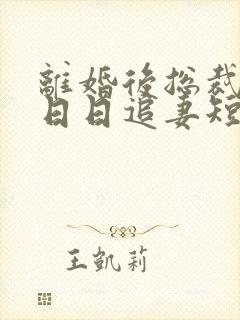 離婚後総裁
日日追妻短
王凱莉